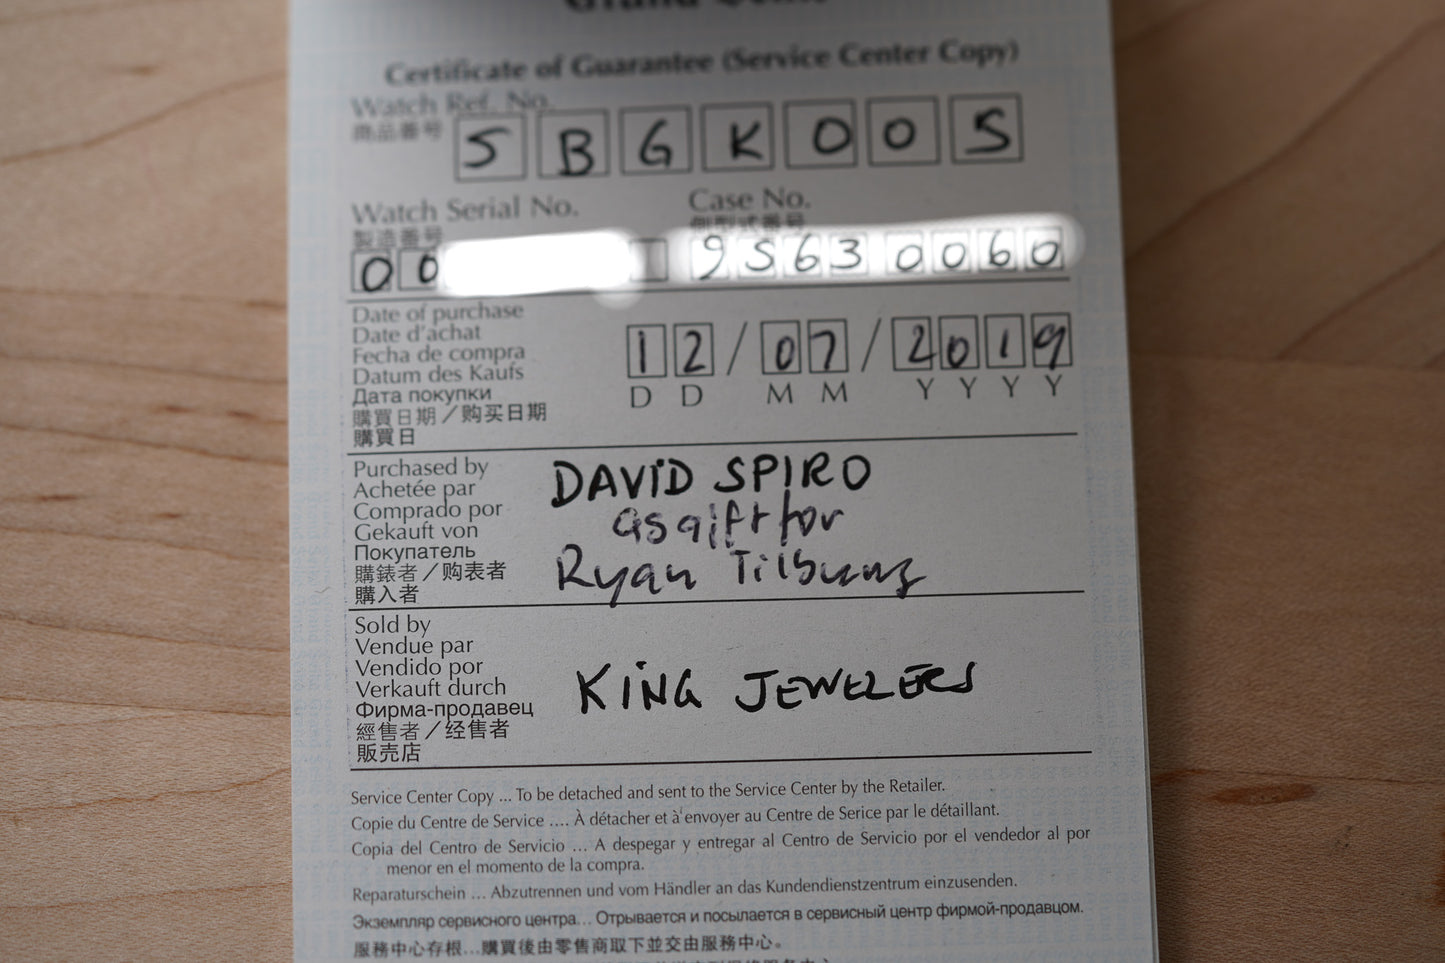 Grand Seiko
Certificate of Guarantee (Service Center Copy)
Watch Ref. No.
商品番号 SBGK005
Watch Serial No. Case No.
製造番号 側型式番号
00 9S630060
Date of purchase
Date d'achat
Fecha de compra
Datum des Kaufs
Дата покупки
購買日期／购买日期
購買日
12/07/2019
D D M M Y Y Y Y
Purchased by
Achetée par
Comprado por
Gekauft von
Покупатель
購錶者／购表者
購入者
DAViD SPIRO
as gift for
Ryan Tilbury
Sold by
Vendue par
Vendido por
Verkauft durch
Фирма-продавец
經售者／经售者
販売店
KiNG JEWELERS
Service Center Copy ... To be detached and sent to the Service Center by the Retailer.
Copie du Centre de Service .... À détacher et à envoyer au Centre de Serice par le détaillant.
Copia del Centro de Servicio ... A despegar y entregar al Centro de Servicio por el vendedor al por
menor en el momento de la compra.
Reparaturschein ... Abzutrennen und vom Händler an das Kundendienstzentrum einzusenden.
Экземпляр сервисного центра... Отрывается и посылается в сервисный центр фирмой-продавцом.
服務中心存根...購買後由零售商取下並交由服務中心。